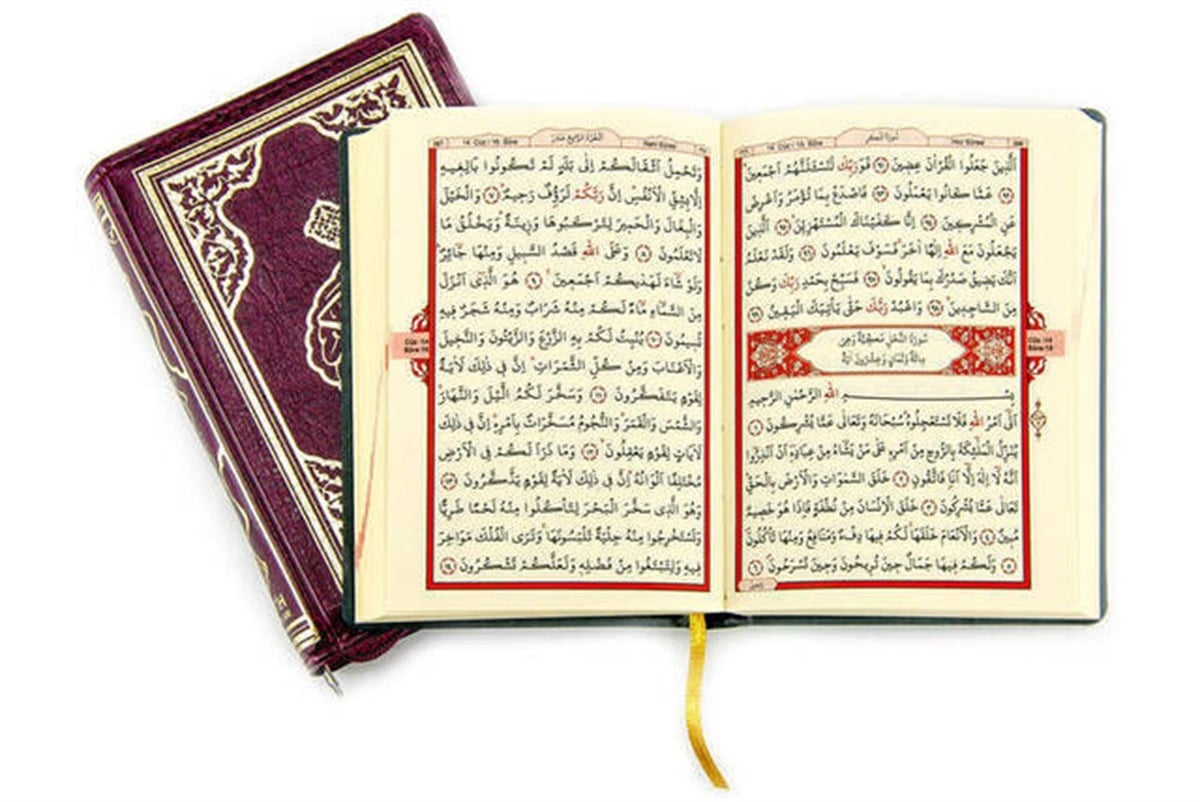 14. Cüz / 15. Sûre
سُورَةُ الْحِجْرِ
Hicr Sûresi
اَلَّذِينَ جَعَلُوا الْقُرْاٰنَ عِضِينَ ﴿٩١﴾ فَوَرَبِّكَ لَنَسْـَٔلَنَّهُمْ اَجْمَعِينَ
﴿٩٢﴾ عَمَّا كَانُوا يَعْمَلُونَ ﴿٩٣﴾ فَاصْدَعْ بِمَا تُؤْمَرُ وَاَعْرِضْ
عَنِ الْمُشْرِكِينَ ﴿٩٤﴾ اِنَّا كَفَيْنَاكَ الْمُسْتَهْزِئِينَ ﴿٩٥﴾ اَلَّذِينَ
يَجْعَلُونَ مَعَ اللّٰهِ اِلٰهًا اٰخَرَ فَسَوْفَ يَعْلَمُونَ ﴿٩٦﴾ وَلَقَدْ نَعْلَمُ
اَنَّكَ يَضِيقُ صَدْرُكَ بِمَا يَقُولُونَ ﴿٩٧﴾ فَسَبِّحْ بِحَمْدِ رَبِّكَ وَكُنْ
مِنَ السَّاجِدِينَ ﴿٩٨﴾ وَاعْبُدْ رَبَّكَ حَتّٰى يَأْتِيَكَ الْيَقِينُ ﴿٩٩﴾
سُورَةُ النَّحْلِ مَكِّيَّةٌ وَهِيَ
مِائَةٌ وَثَمَانٍ وَعِشْرُونَ اٰيَةً
بِسْمِ اللّٰهِ الرَّحْمٰنِ الرَّحِيمِ
اَتٰى اَمْرُ اللّٰهِ فَلَا تَسْتَعْجِلُوهُ سُبْحَانَهُ وَتَعَالٰى عَمَّا يُشْرِكُونَ ﴿١﴾
يُنَزِّلُ الْمَلٰئِكَةَ بِالرُّوحِ مِنْ اَمْرِهِ عَلٰى مَنْ يَشَاءُ مِنْ عِبَادِهِ اَنْ اَنْذِرُوا
اَنَّهُ لَا اِلٰهَ اِلَّا اَنَا فَاتَّقُونِ ﴿٢﴾ خَلَقَ السَّمٰوَاتِ وَالْاَرْضَ بِالْحَقِّ
تَعَالٰى عَمَّا يُشْرِكُونَ ﴿٣﴾ خَلَقَ الْاِنْسَانَ مِنْ نُطْفَةٍ فَاِذَا هُوَ خَصِيمٌ
مُبِينٌ ﴿٤﴾ وَالْاَنْعَامَ خَلَقَهَا لَكُمْ فِيهَا دِفْءٌ وَمَنَافِعُ وَمِنْهَا تَأْكُلُونَ
﴿٥﴾ وَلَكُمْ فِيهَا جَمَالٌ حِينَ تُرِيحُونَ وَحِينَ تَسْرَحُونَ ﴿٦﴾
14. Cüz / 16. Sûre
اَلْجُزْءُ الرَّابِعُ عَشَرَ
Nahl Sûresi
وَتَحْمِلُ اَثْقَالَكُمْ اِلٰى بَلَدٍ لَمْ تَكُونُوا بَالِغِيهِ
اِلَّا بِشِقِّ الْاَنْفُسِ اِنَّ رَبَّكُمْ لَرَؤُفٌ رَحِيمٌ ﴿٧﴾ وَالْخَيْلَ
وَالْبِغَالَ وَالْحَمِيرَ لِتَرْكَبُوهَا وَزِينَةً وَيَخْلُقُ مَا
لَا تَعْلَمُونَ ﴿٨﴾ وَعَلَى اللّٰهِ قَصْدُ السَّبِيلِ وَمِنْهَا جَائِرٌ
وَلَوْ شَاءَ لَهَدٰيكُمْ اَجْمَعِينَ ﴿٩﴾ هُوَ الَّذِى اَنْزَلَ
مِنَ السَّمَاءِ مَاءً لَكُمْ مِنْهُ شَرَابٌ وَمِنْهُ شَجَرٌ فِيهِ
تُسِيمُونَ ﴿١٠﴾ يُنْبِتُ لَكُمْ بِهِ الزَّرْعَ وَالزَّيْتُونَ وَالنَّخِيلَ
وَالْاَعْنَابَ وَمِنْ كُلِّ الثَّمَرَاتِ اِنَّ فِى ذٰلِكَ لَاٰيَةً
لِقَوْمٍ يَتَفَكَّرُونَ ﴿١١﴾ وَسَخَّرَ لَكُمُ الَّيْلَ وَالنَّهَارَ
وَالشَّمْسَ وَالْقَمَرَ وَالنُّجُومُ مُسَخَّرَاتٌ بِاَمْرِهِ اِنَّ فِى ذٰلِكَ
لَاٰيَاتٍ لِقَوْمٍ يَعْقِلُونَ ﴿١٢﴾ وَمَا ذَرَاَ لَكُمْ فِى الْاَرْضِ
مُخْتَلِفًا اَلْوَانُهُ اِنَّ فِى ذٰلِكَ لَاٰيَةً لِقَوْمٍ يَذَّكَّرُونَ ﴿١٣﴾
وَهُوَ الَّذِى سَخَّرَ الْبَحْرَ لِتَأْكُلُوا مِنْهُ لَحْمًا طَرِيًّا
وَتَسْتَخْرِجُوا مِنْهُ حِلْيَةً تَلْبَسُونَهَا وَتَرَى الْفُلْكَ مَوَاخِرَ
فِيهِ وَلِتَبْتَغُوا مِنْ فَضْلِهِ وَلَعَلَّكُمْ تَشْكُرُونَ ﴿١٤﴾